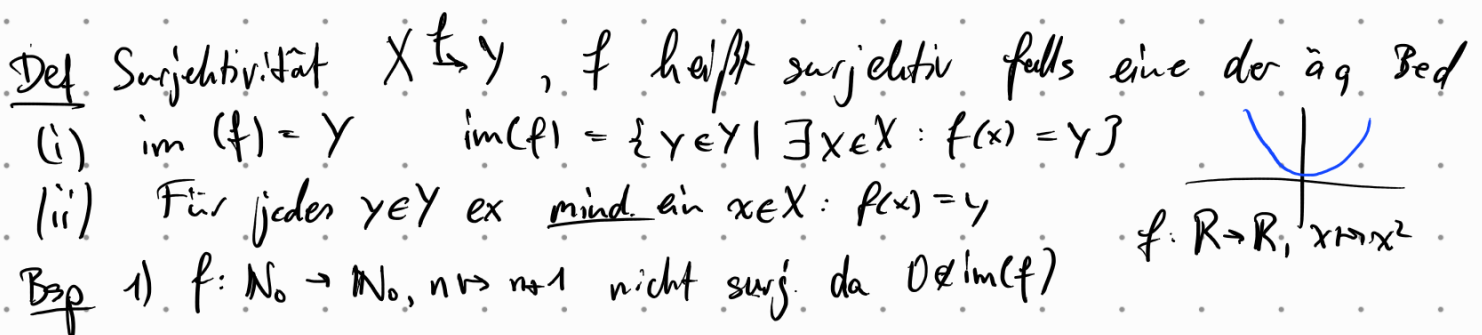 Def Surjektivität X f→ Y, f heißt surjektiv falls eine der äq Bed
(i) im (f) = Y im(f) = {y∈Y | ∃x∈X : f(x) = y}
(ii) Für jedes y∈Y ex mind. ein x∈X : f(x) = y
f: ℝ→ℝ, x↦x²
Bsp 1) f: ℕ₀ → ℕ₀, n ↦ n+1 nicht surj. da 0∉im(f)